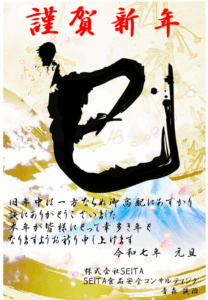 謹賀新年
巳
旧年中は一方ならぬ御高配にあずかり
誠にありがとうございました
本年が皆様にとって幸多き年と
なりますようお祈り申し上げます
令和七年 元旦
株式会社SEITA
SEITA食品安全コンサルティング